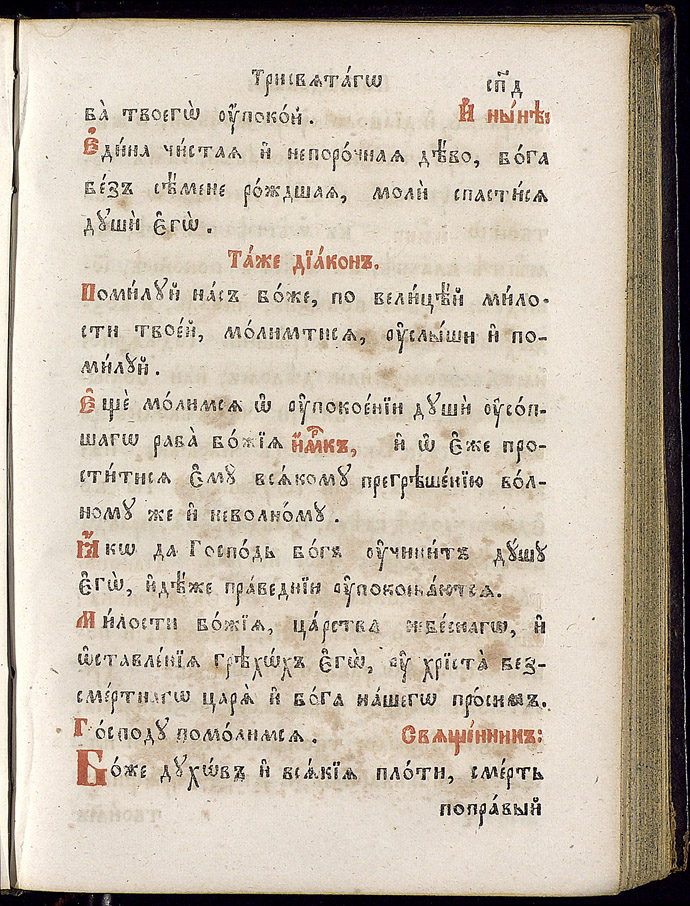 Трисвѧта́гѡ
сп҃д
ва̀ твоегѡ̀ оу҆поко́й.
И҆ ны́нѣ:
Е҆ди́на чи́стая и҆ непоро́чная дѣ́во, бо́га
бе́зъ сѣ́мене ро́ждшая, молѝ спасти́ся
дꙋшѝ є҆гѡ̀.
Та́же дїа́конъ.
Поми́лꙋй на́съ бо́же, по вели́цѣй ми́ло-
сти твое́й, мо́лимтися, оу҆слы́ши и҆ по-
ми́лꙋй.
Є҆щѐ мо́лимся ѡ҆ оу҆покое́нїи дꙋшѝ оу҆со́п-
шагѡ раба̀ бо́жїя и҆́мⷬ҇къ, и҆ ѡ҆ є҆́же про-
сти́тися є҆мꙋ̀ вся́комꙋ прегрѣше́нїю во́л-
номꙋ же и҆ нево́лномꙋ.
Ꙗ҆́кѡ да Госпо́дь бо́гъ оу҆чини́тъ дꙋ́шꙋ
є҆гѡ̀, и҆дѣ́же пра́веднїи оу҆поко́иваются.
Ми́лости бо́жїя, ца́рства небе́снагѡ, и҆
ѡ҆ставле́нїя грѣхѡ́въ є҆гѡ̀, оу҆ хрїста̀ без-
сме́ртнагѡ царя̀ и҆ бо́га на́шегѡ про́симъ.
Го́сподꙋ помо́лимся.
Свяще́нникъ:
Бо́же дꙋхѡ́въ и҆ вся́кїя пло́ти, сме́рть
попра́вый